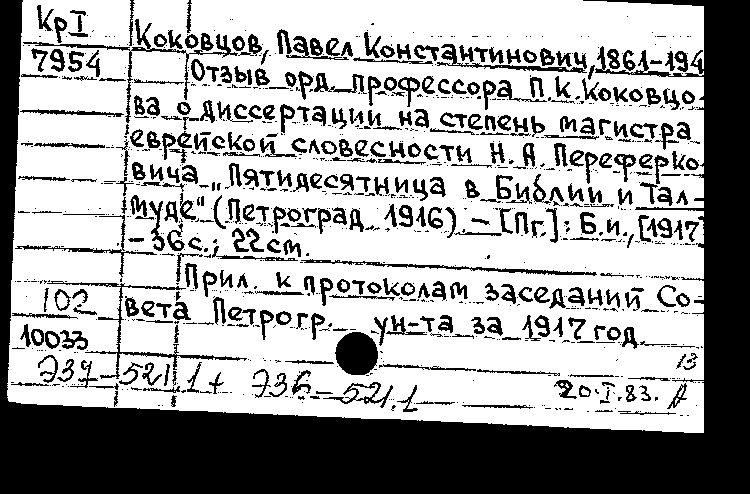 Кр I
7954
Коковцов, Павел Константинович, 1861-194
Отзыв орд. профессора П.К. Коковцо-
ва о диссертации на степень магистра
еврейской словесности Н.А. Переферко-
вича „Пятидесятница в Библии и Тал-
муде“ (Петроград 1916). - [Пг.]: Б.и., [1917]
- 36 с.; 22 см.
Прил. к протоколам заседаний Со-
вета Петрогр. ун-та за 1917 год.
102
10033
13
Э37-521.1 + Э36-521.1
20.I.83.